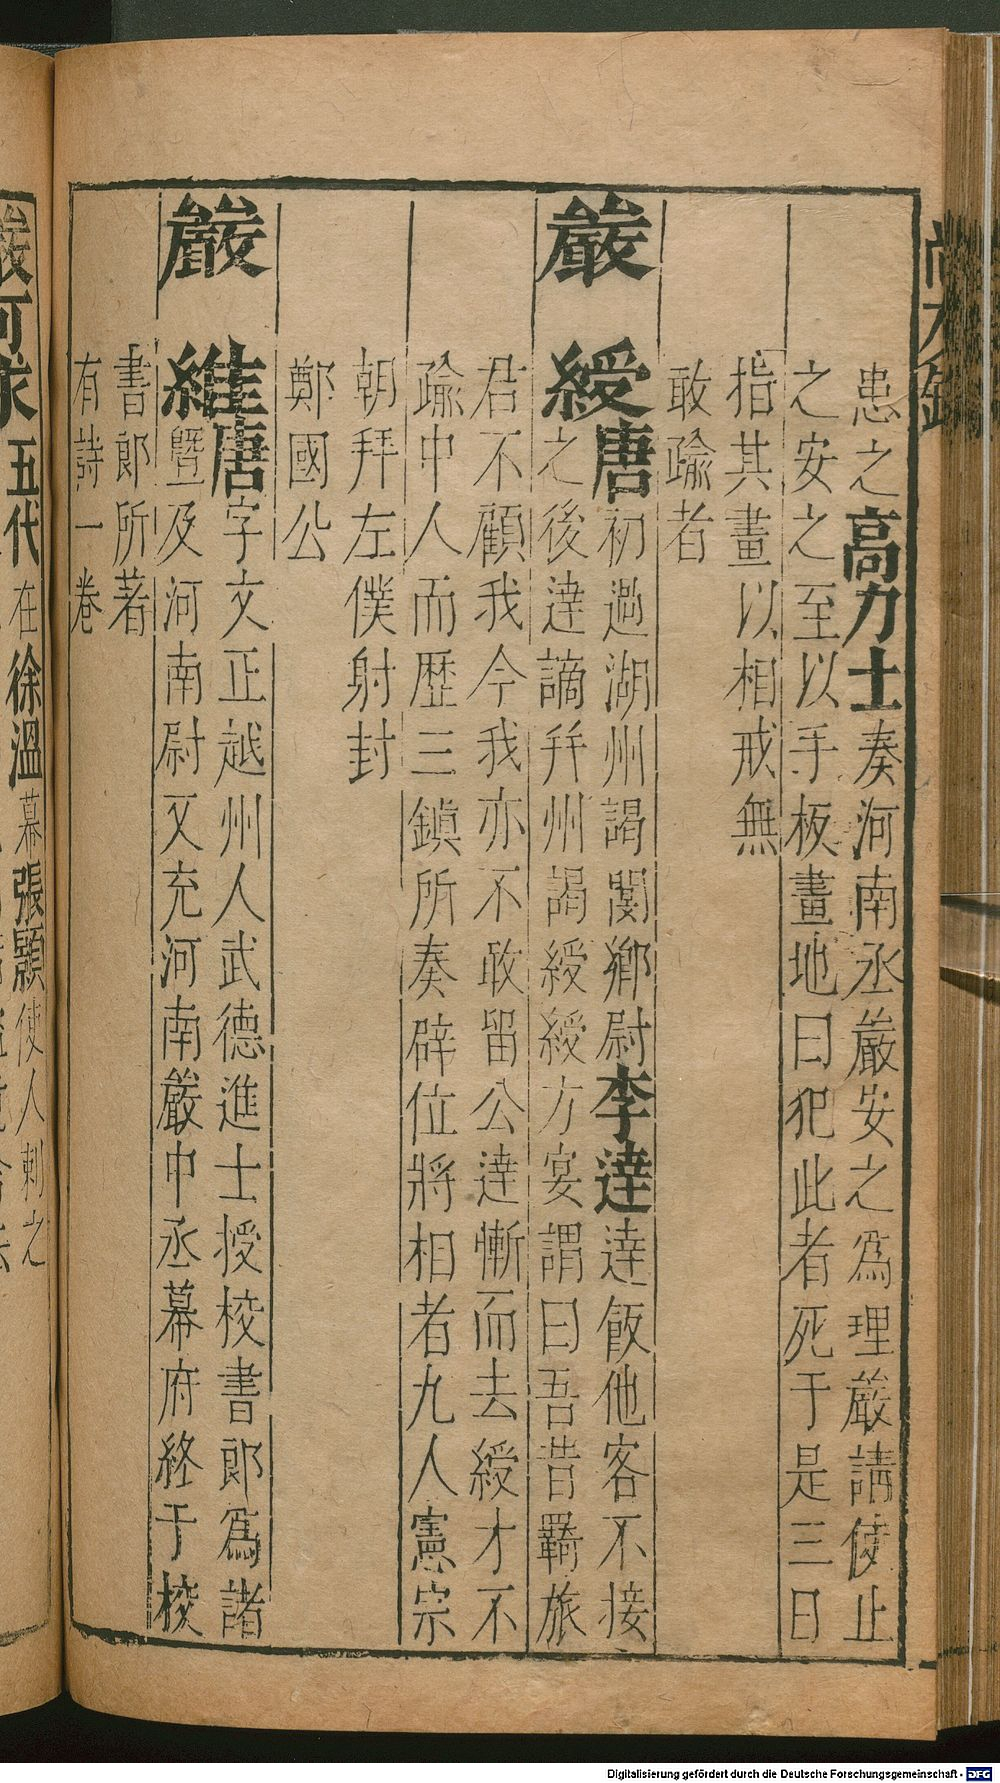 患之高力士奏河南丞嚴安之爲理嚴請使止
之安之至以手板畫地曰犯此者死于是三日
指其畫以相戒無
敢踰者
嚴綬唐初過湖州謁閿鄉尉李達達飯他客不接
之後達謫幷州謁綬綬方宴謂曰吾昔羇旅
君不顧我今我亦不敢留公達慚而去綬才不
踰中人而歷三鎮所奏辟位將相者九人憲宗
朝拜左僕射封
鄭國公
嚴維唐字文正越州人武德進士授校書郎爲諸
暨及河南尉又充河南嚴中丞幕府終于校
書郎所著
有詩一卷
嚴可求五代在徐溫幕張顥使人刺之
Digitalisierung gefördert durch die Deutsche Forschungsgemeinschaft - DFG